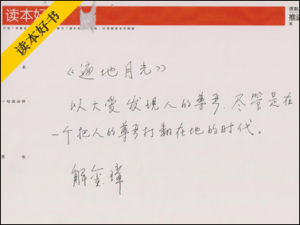 读本好书
读本好书
《遍地月光》
以大爱发现人的尊严,尽管是在
一个把人的尊严打翻在地的时代。
解玺璋